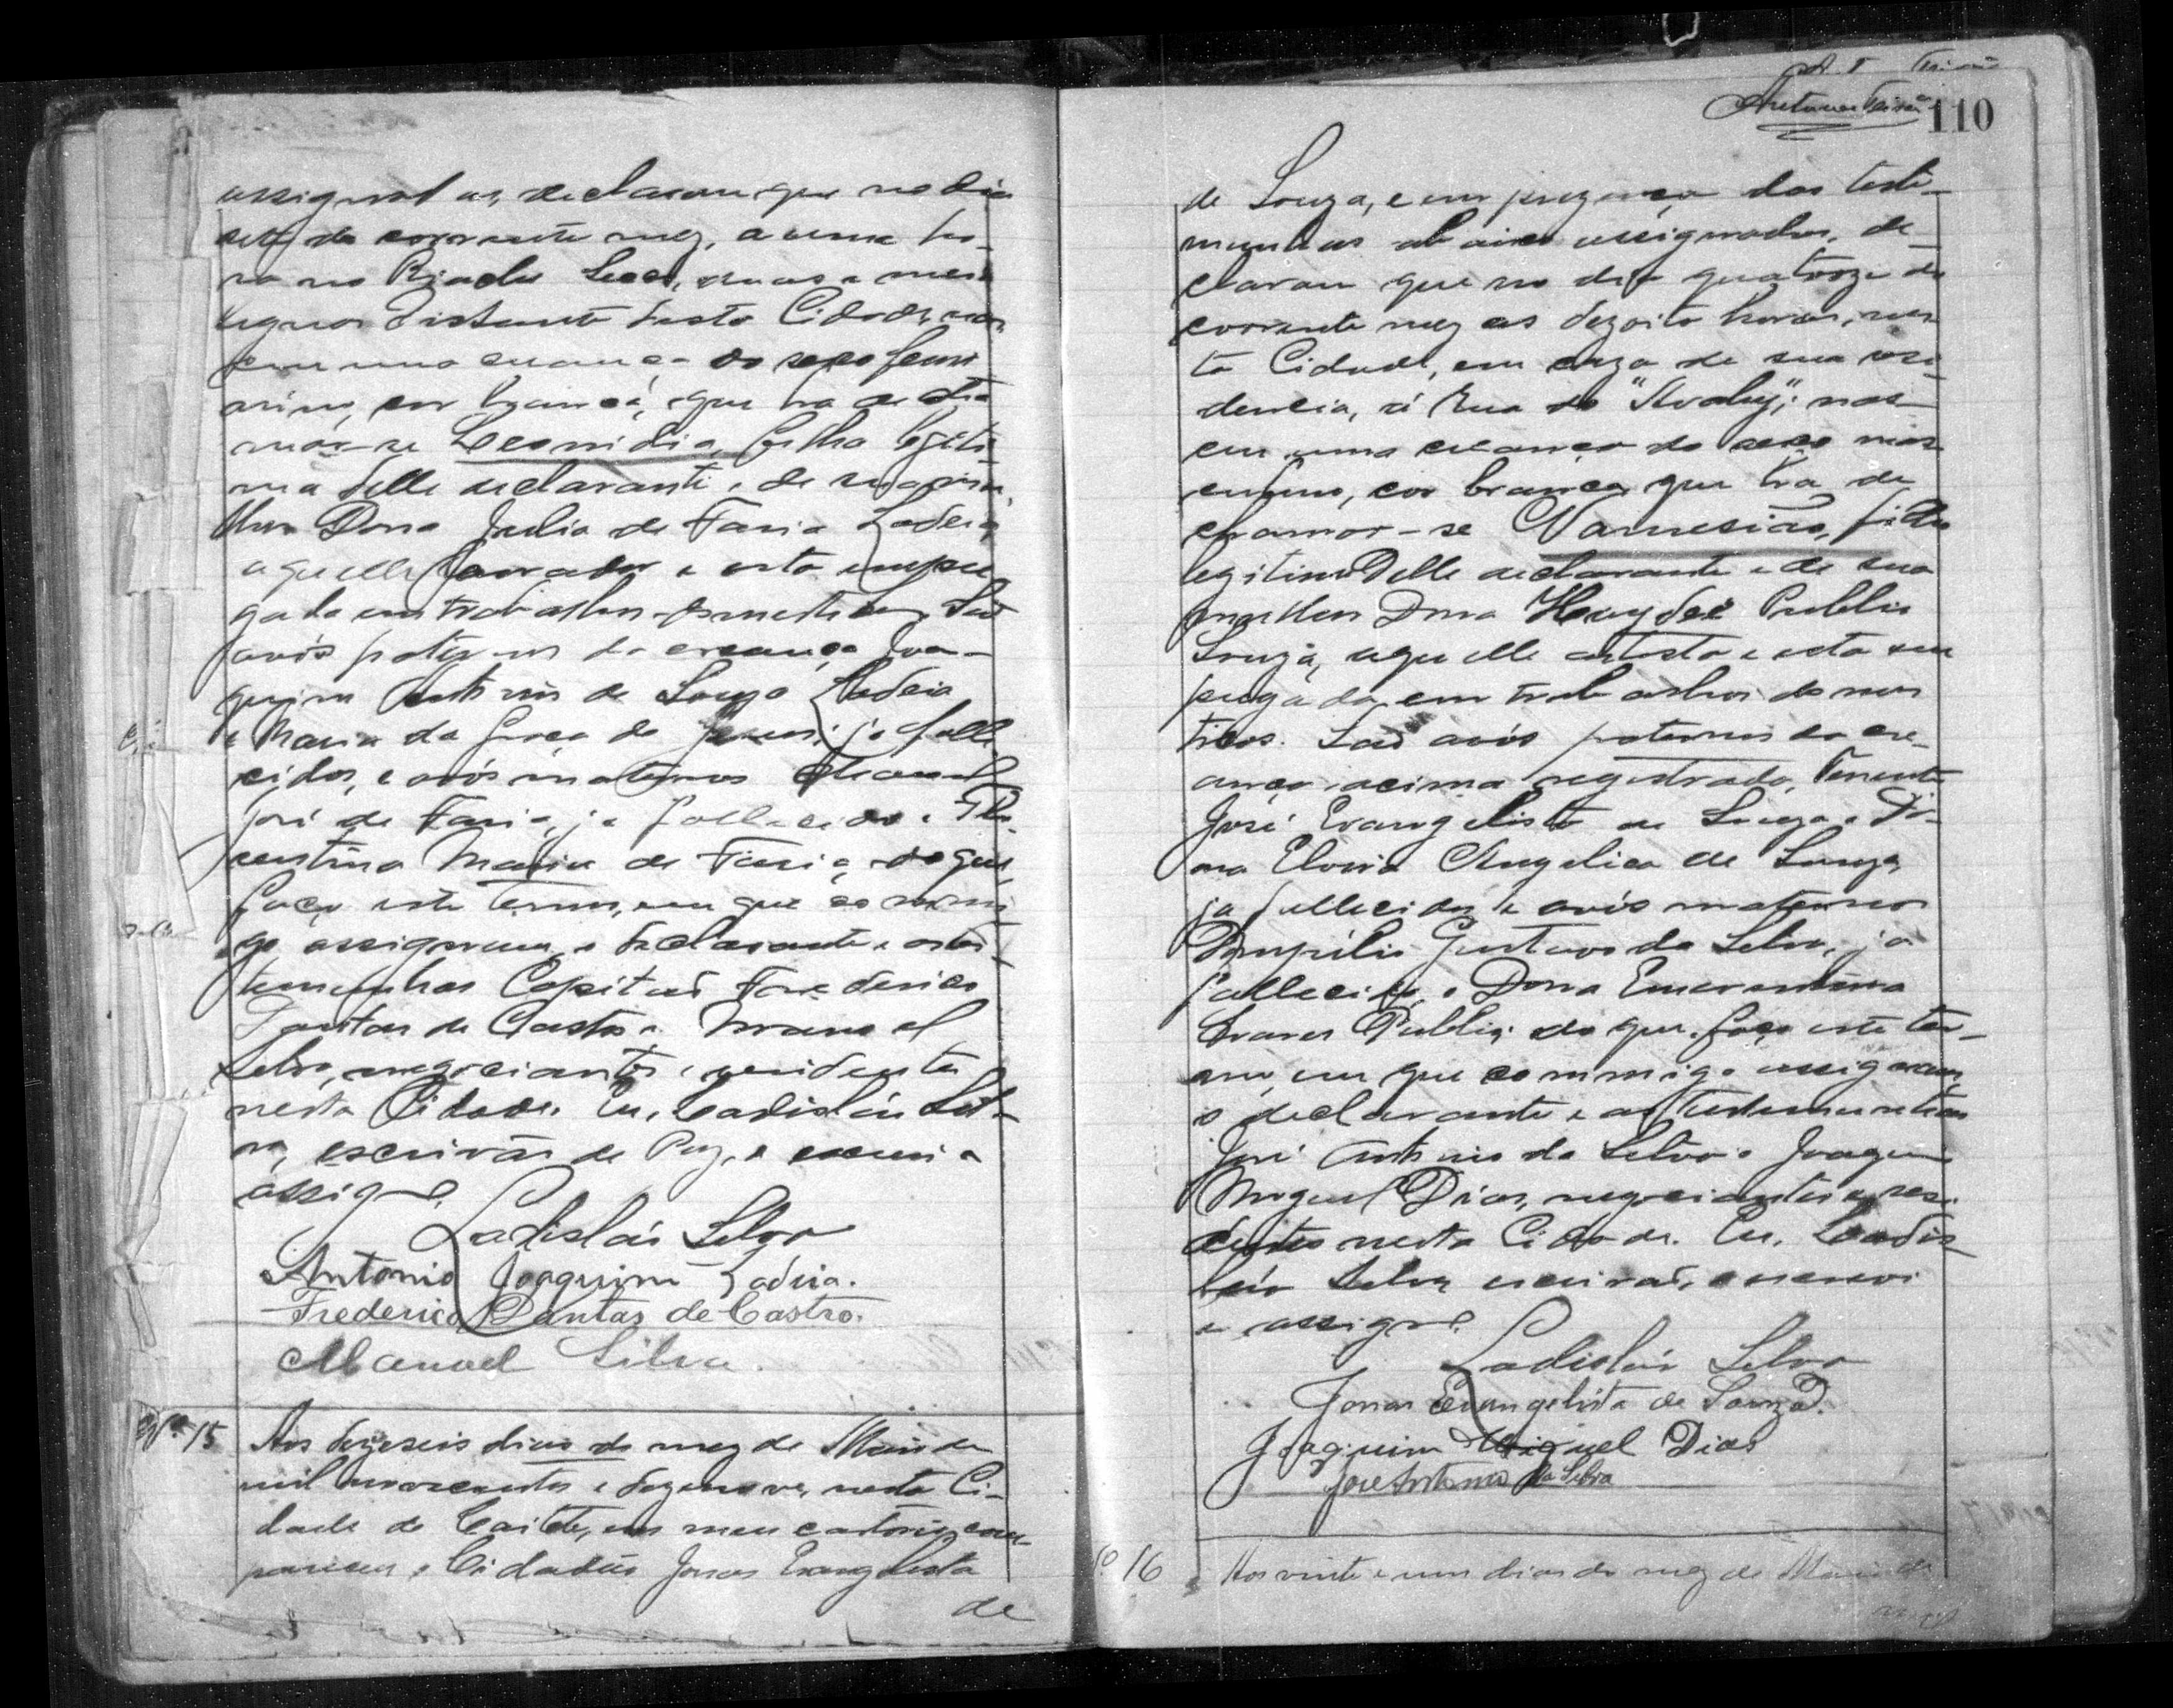 assignadas, declarou que no dia
sete do corrente mez, a uma ho-
ra no Riacho Secco, duas e meia
leguas distante desta Cidade, nas
ceu uma creança do sexo femi
nino, cor branca, que ha de cha
mar-se Leonidia, filha legiti
ma delle declarante e de sua mu
lher Dona Julia de Faria Ladeia,
aquelle lavrador e esta empre
gada em trabalhos domesticos. São
avós paternos da creança Joa-
quim Antonio de Souza Ladeia
e Maria da Graça de Jesus, ja falle
cidos, e avós maternos Manoel
José de Faria, ja fallecido e
Maria de Faria, do que,
faço este termo, em que commi
go assignam, o declarante e as tes
temunhas Capitão Frederico
Dantas de Castro e Manoel
Silva, negociantes e residentes
nesta Cidade. Eu, Ladisláu Sil-
va, escrivão de Paz, o escrevi e
assigno.
Ladisláu Silva
Antonio Joaquim Ladeia.
Frederico Dantas de Castro.
Manoel Silva.
Nº 15 Aos dezeseis dias do mez de Maio de
mil novecentos e dezenove, nesta Ci-
dade de Caiteté, em meu cartorio, com-
pareceu o Cidadão Jonas Evangelista
de
110
de Souza, e em prezença das teste-
munhas abaixo assignadas, de-
clarou que no dia quatorze do
corrente mez as dezoito horas, nes
ta Cidade, em caza de sua resi-
dencia, á Rua do "Avahy", nas-
ceu uma creança do sexo mas
culino, cor branca que ha de
chamar-se Varnesião, filho
legitimo delle declarante e de sua
mulher Dona Haydeé Publio
Souza, aquelle artista e esta em
pregada em trabalhos domes
ticos. São avós paternos da cre-
ança acima registrada, Tenente
José Evangelista de Souza e Do-
na Angelica de Souza,
ja fallecidos e avós maternos
Pompilio Gustavo da Silva, ja
fallecido, e Dona Emerentina
Publio; do que faço este ter-
mo, em que commigo assignam,
o declarante e as testemunhas
José Antonio da Silva e Joaquim
Miguel Dias, negociantes e resi-
dentes nesta Cidade. Eu, Ladis-
láu Silva, escrivão, o escrevi
e assigno.
Ladisláu Silva
Jonas Evangelista de Souza.
Joaquim Miguel Dias
José Antonio da Silva
Nº 16 Aos vinte e um dias do mez de Maio de